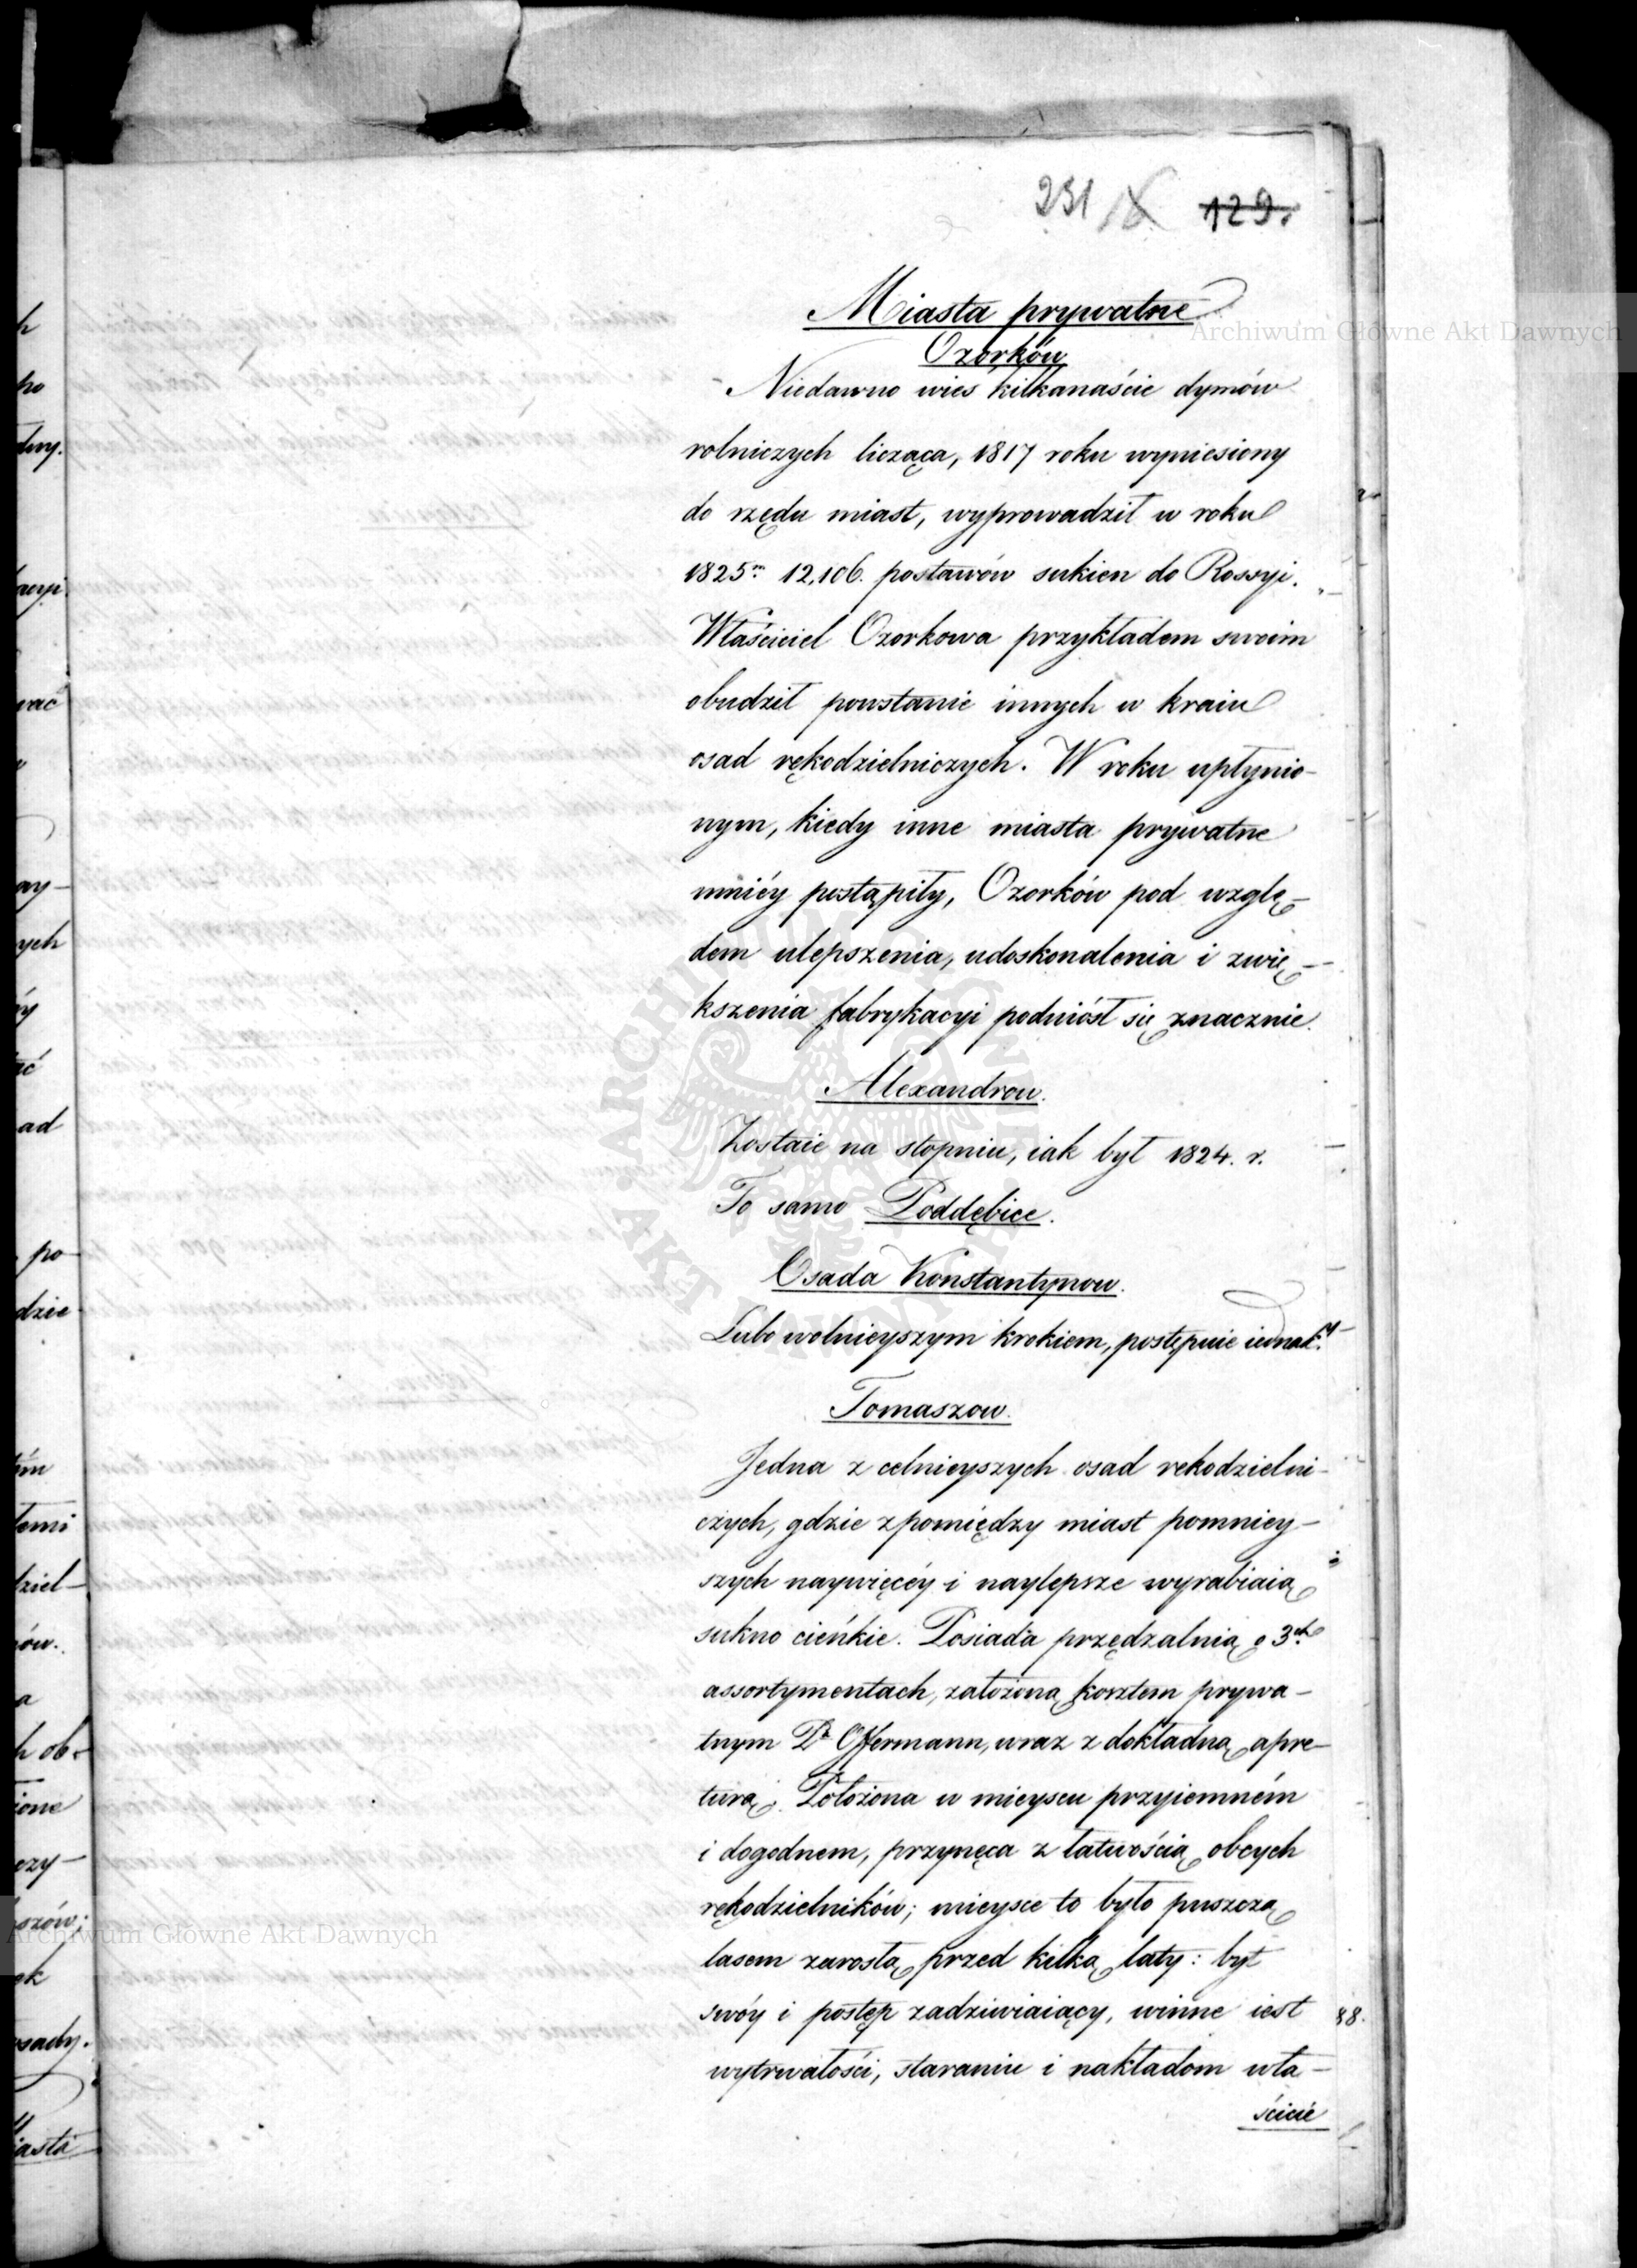 231 129.
Miasta prywatne
Ozorków
Niedawno wies kilkanaście dymów
rolniczych licząca, 1817 roku wyniesiony
do rzędu miast, wyprowadził w roku
1825m 12,106. postawów sukien do Rossyi.
Właściciel Ozorkowa przykładem swoim
obudził powstanie innych w kraiu
osad rękodzielniczych. W roku upłynio-
nym, kiedy inne miasta prywatne
mniéy postąpiły, Ozorków pod wzglę-
dem ulepszenia, udoskonalenia i zwię-
kszenia fabrykacyi podniósł się znacznie.
Alexandrow.
Zostaie na stopniu, iak był 1824. r.
To samo Poddębice.
Osada Konstantynow.
Lubo wolnieyszym krokiem, postępuie iednak.
Tomaszow.
Jedna z celnieyszych osad rekodzielni-
czych, gdzie zpomiędzy miast pomniey-
szych naywięcéy i naylepsze wyrabiaią
sukno cieńkie. Posiada przędzalnią o 3ch
assortymentach, założoną kosztem prywa-
tnym Pa Offermann, wraz z dokładną apre-
turą. Położona w mieyscu przyiemném
i dogodnem, przynęca z łatwością obcych
rękodzielników; mieysce to było puszczą
lasem zarosłą przed kilką laty: byt
swóy i postęp zadziwiaiący, winne iest
wytrwałości, staraniu i nakładom wła-
ścicie
88.
h
po
wać
ych
ad
po-
dzie
temi
dziel-
ów.
a
h ob-
ione
czy-
szów;
ek
osady.
iasta
Archiwum Główne Akt Dawnych
Archiwum Główne Akt Dawnych